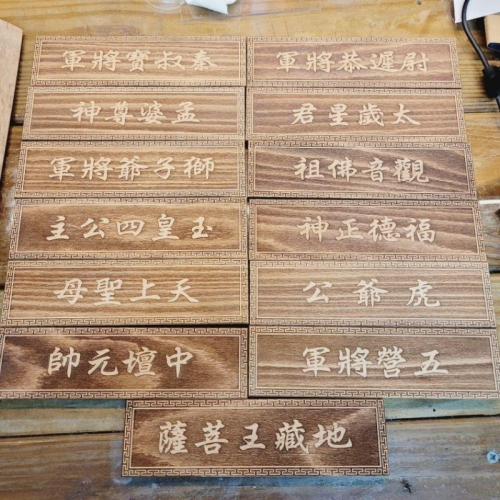 尉遲恭將軍
秦叔寶將軍
太歲星君
孟婆尊神
觀音佛祖
獅子爺將軍
福德正神
玉皇四公主
虎爺公
天上聖母
五營將軍
中壇元帥
地藏王菩薩